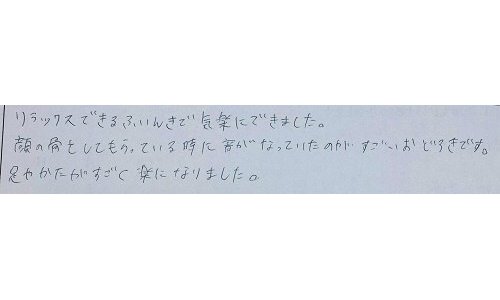 リラックスできるふいんきで気楽にできました。
顔の骨をしてもらっている時に音がなっていたのがすごーいおどろきです。
足やかたがすごく楽になりました。